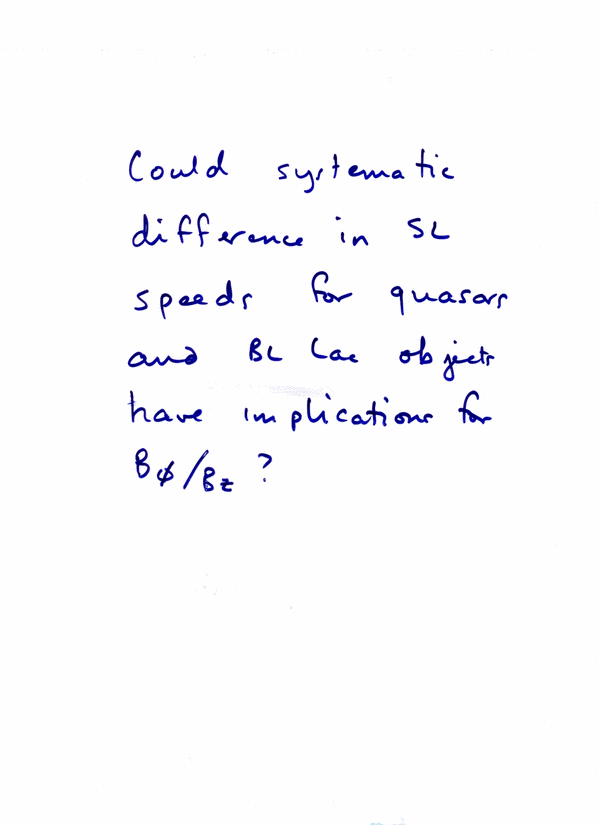 Could systematic
difference in SL
speeds for quasars
and BL Lac objects
have implications for
Bφ/Bz ?